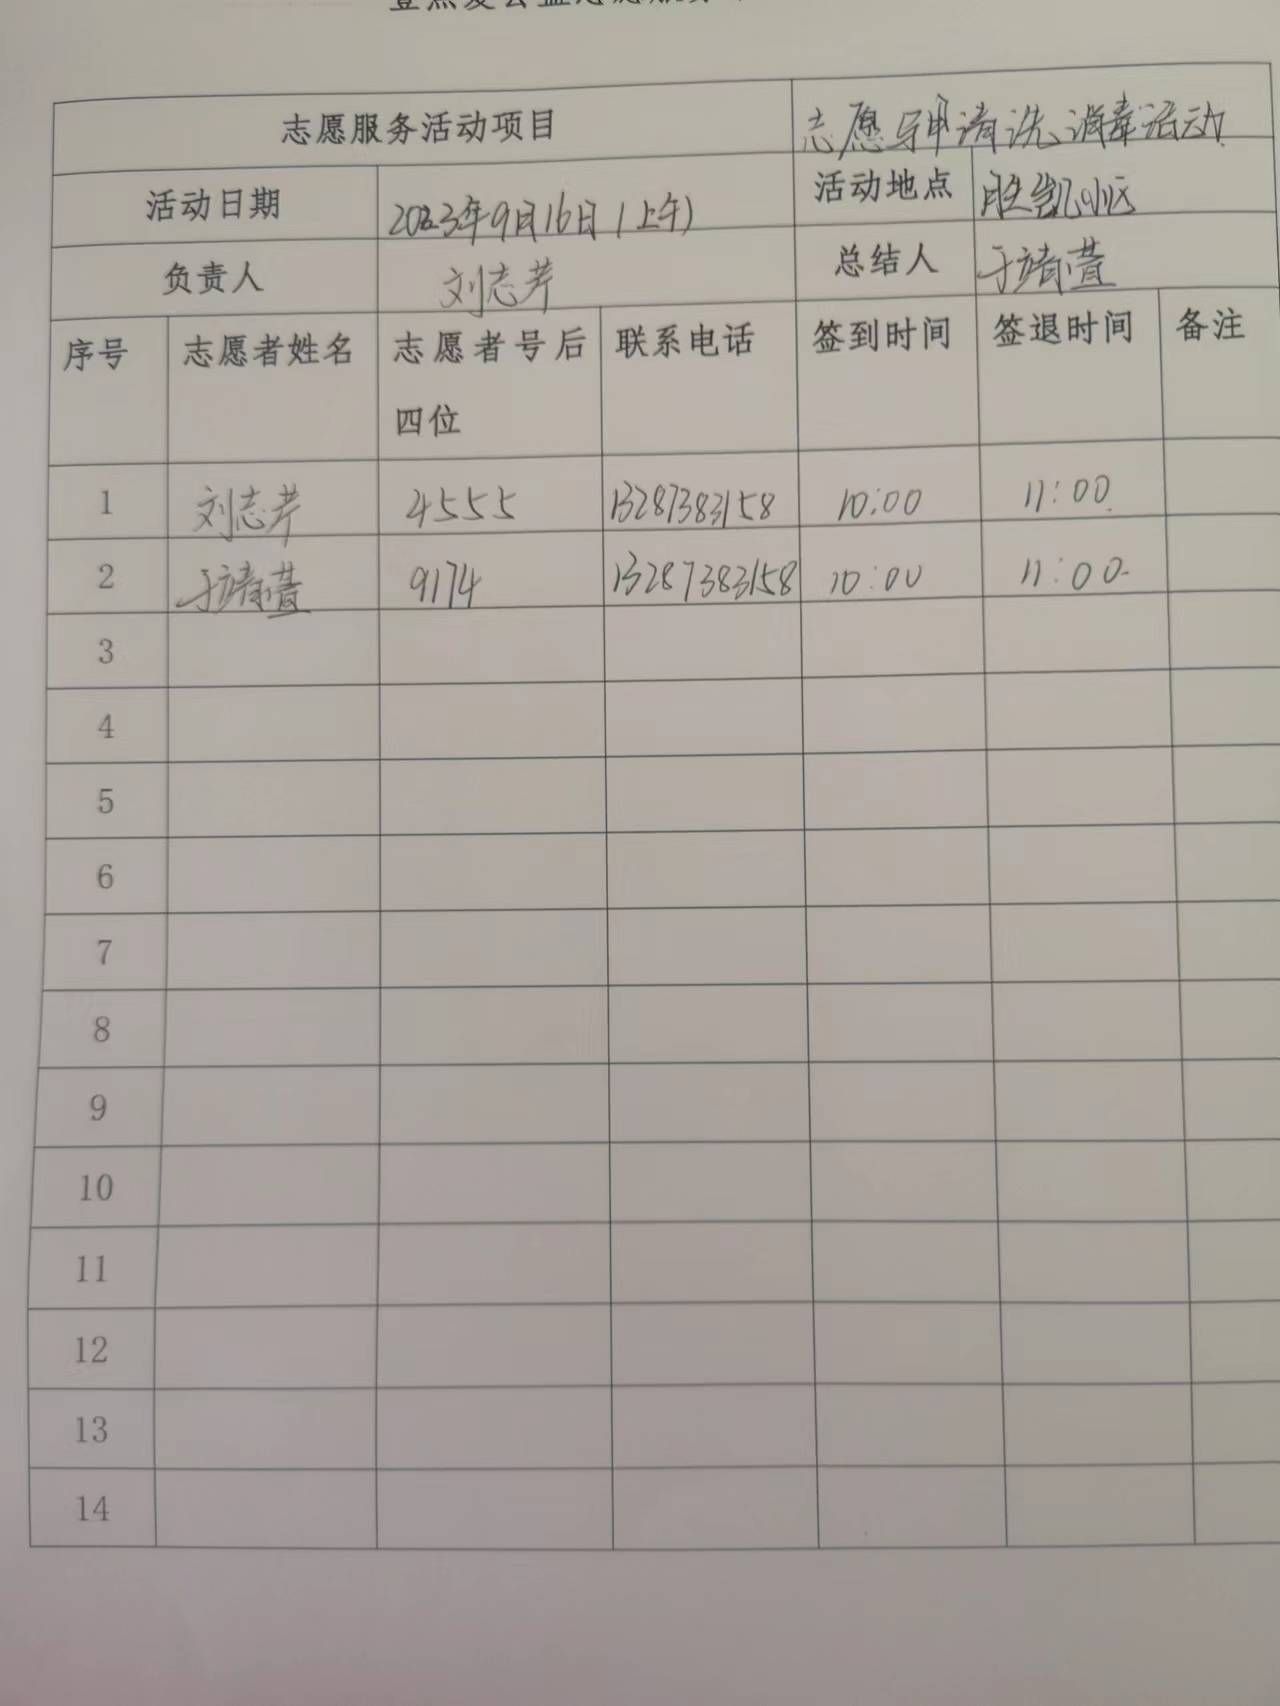 志愿服务活动项目 志愿马甲清洗消毒活动
活动日期 2023年9月16日(上午) 活动地点 胜凯小区
负责人 刘志芹 总结人 于靖萱
序号 志愿者姓名 志愿者号后四位 联系电话 签到时间 签退时间 备注
1 刘志芹 4555 13287383158 10:00 11:00
2 于靖萱 9174 13287383158 10:00 11:00
3
4
5
6
7
8
9
10
11
12
13
14